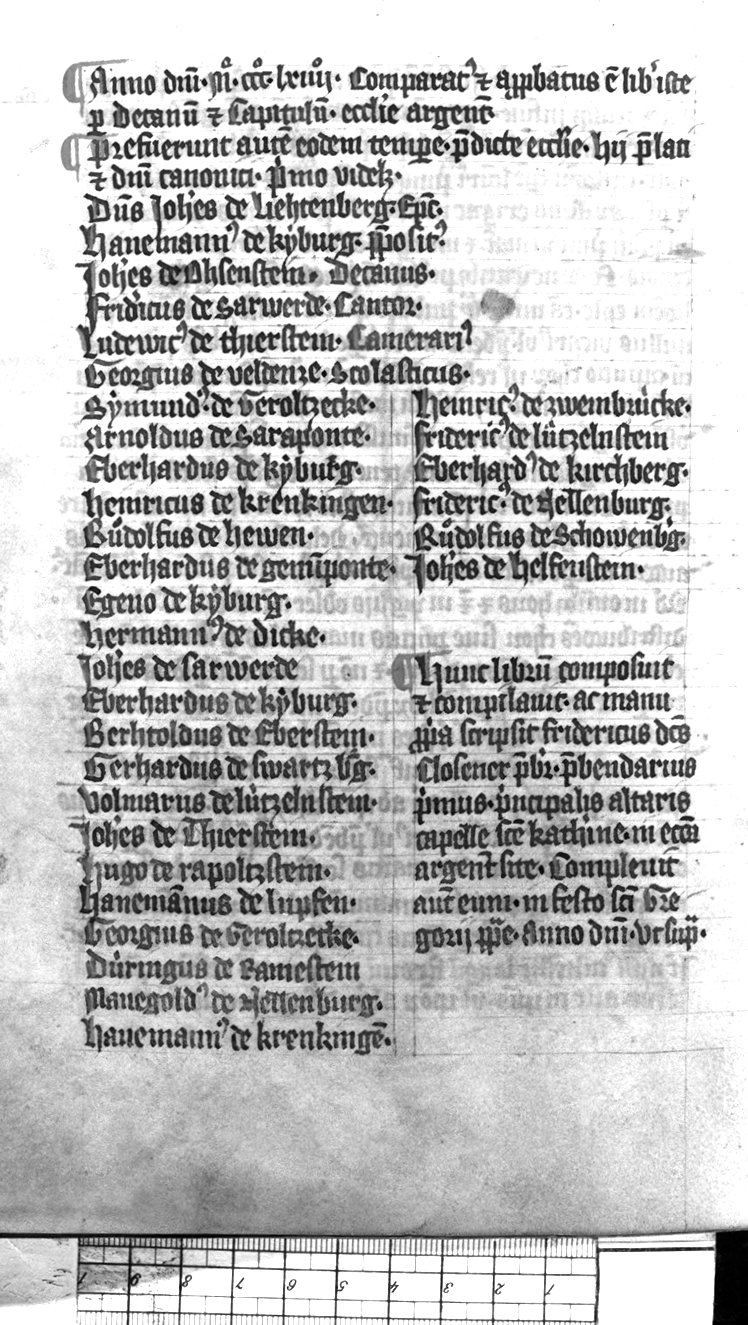 Anno dnī· Mͦ· ccͦcͦ· lxiiijͦ· Comparatꝰ ⁊ app̄batus ē libʼ iste
ꝑ Decanū ⁊ Capitulū· ecclīe argent̄·
Prefuerunt aut̄e eodem tempe· p̄dicte ecclīe· hij p̄lati
⁊ dnī canonici· pʼmo videlꝫ·
Dn̄s Joh̄es de Liehtenberg· Ep̄c·
Hanemannꝰ de kyburg· pp̄ositꝰ
Joh̄es de Ohsenstein· Decanus·
Fridʼicus de Sarwerde· Cantor·
Ludewicꝰ de thierstein· Camerariꝰ
Georgius de veldenze· Scolasticus·
Symundꝰ· de Geroltzecke·
Arnoldus de Saraponte·
Eberhardus de kyburg·
Heinricus de krenkingen·
Ruͦdolfus de hewen·
Eberhardus de gemīponte·
Egeno de kyburg·
Hermannꝰ de dicke·
Joh̄es de sarwerde
Eberhardus de kyburg·
Berhtoldus de Eberstein·
Gerhardus de swartzbʼg·
Volmarus de lútzelnstein·
Joh̄es de Thierstein·
Hugo de rapoltzstein·
Hanemānus de lupfen·
Georgius de Geroltzecke·
Dúringus de Ramestein
Manegoldꝰ de Nellenburg·
Hanemannꝰ de krenkingē·
Heinricꝰ· de zweinbrúcke·
fridericꝰ de lútzelnstein
Eberhardꝰ de kirchberg·
fridericꝰ de Nellenburg·
Ruͦdolfus de Schowenbʼg·
Joh̄es de helfenstein·
Hunc librū composuit
⁊ compilauit· ac manu
pp̄ia scripsit fridericus dc̄s
Closener p̄bʼr· p̄bendarius
pʼmus· pʼncipalis altaris
capelle sc̄e kathʼine· in ecc̄a
argent̄ site· Compleuit
aut̄ eum· in festo sc̄i Gre
gorij pp̄e· Anno dnī· vt sup̄·
1 2 3 4 5 6 7 8 9